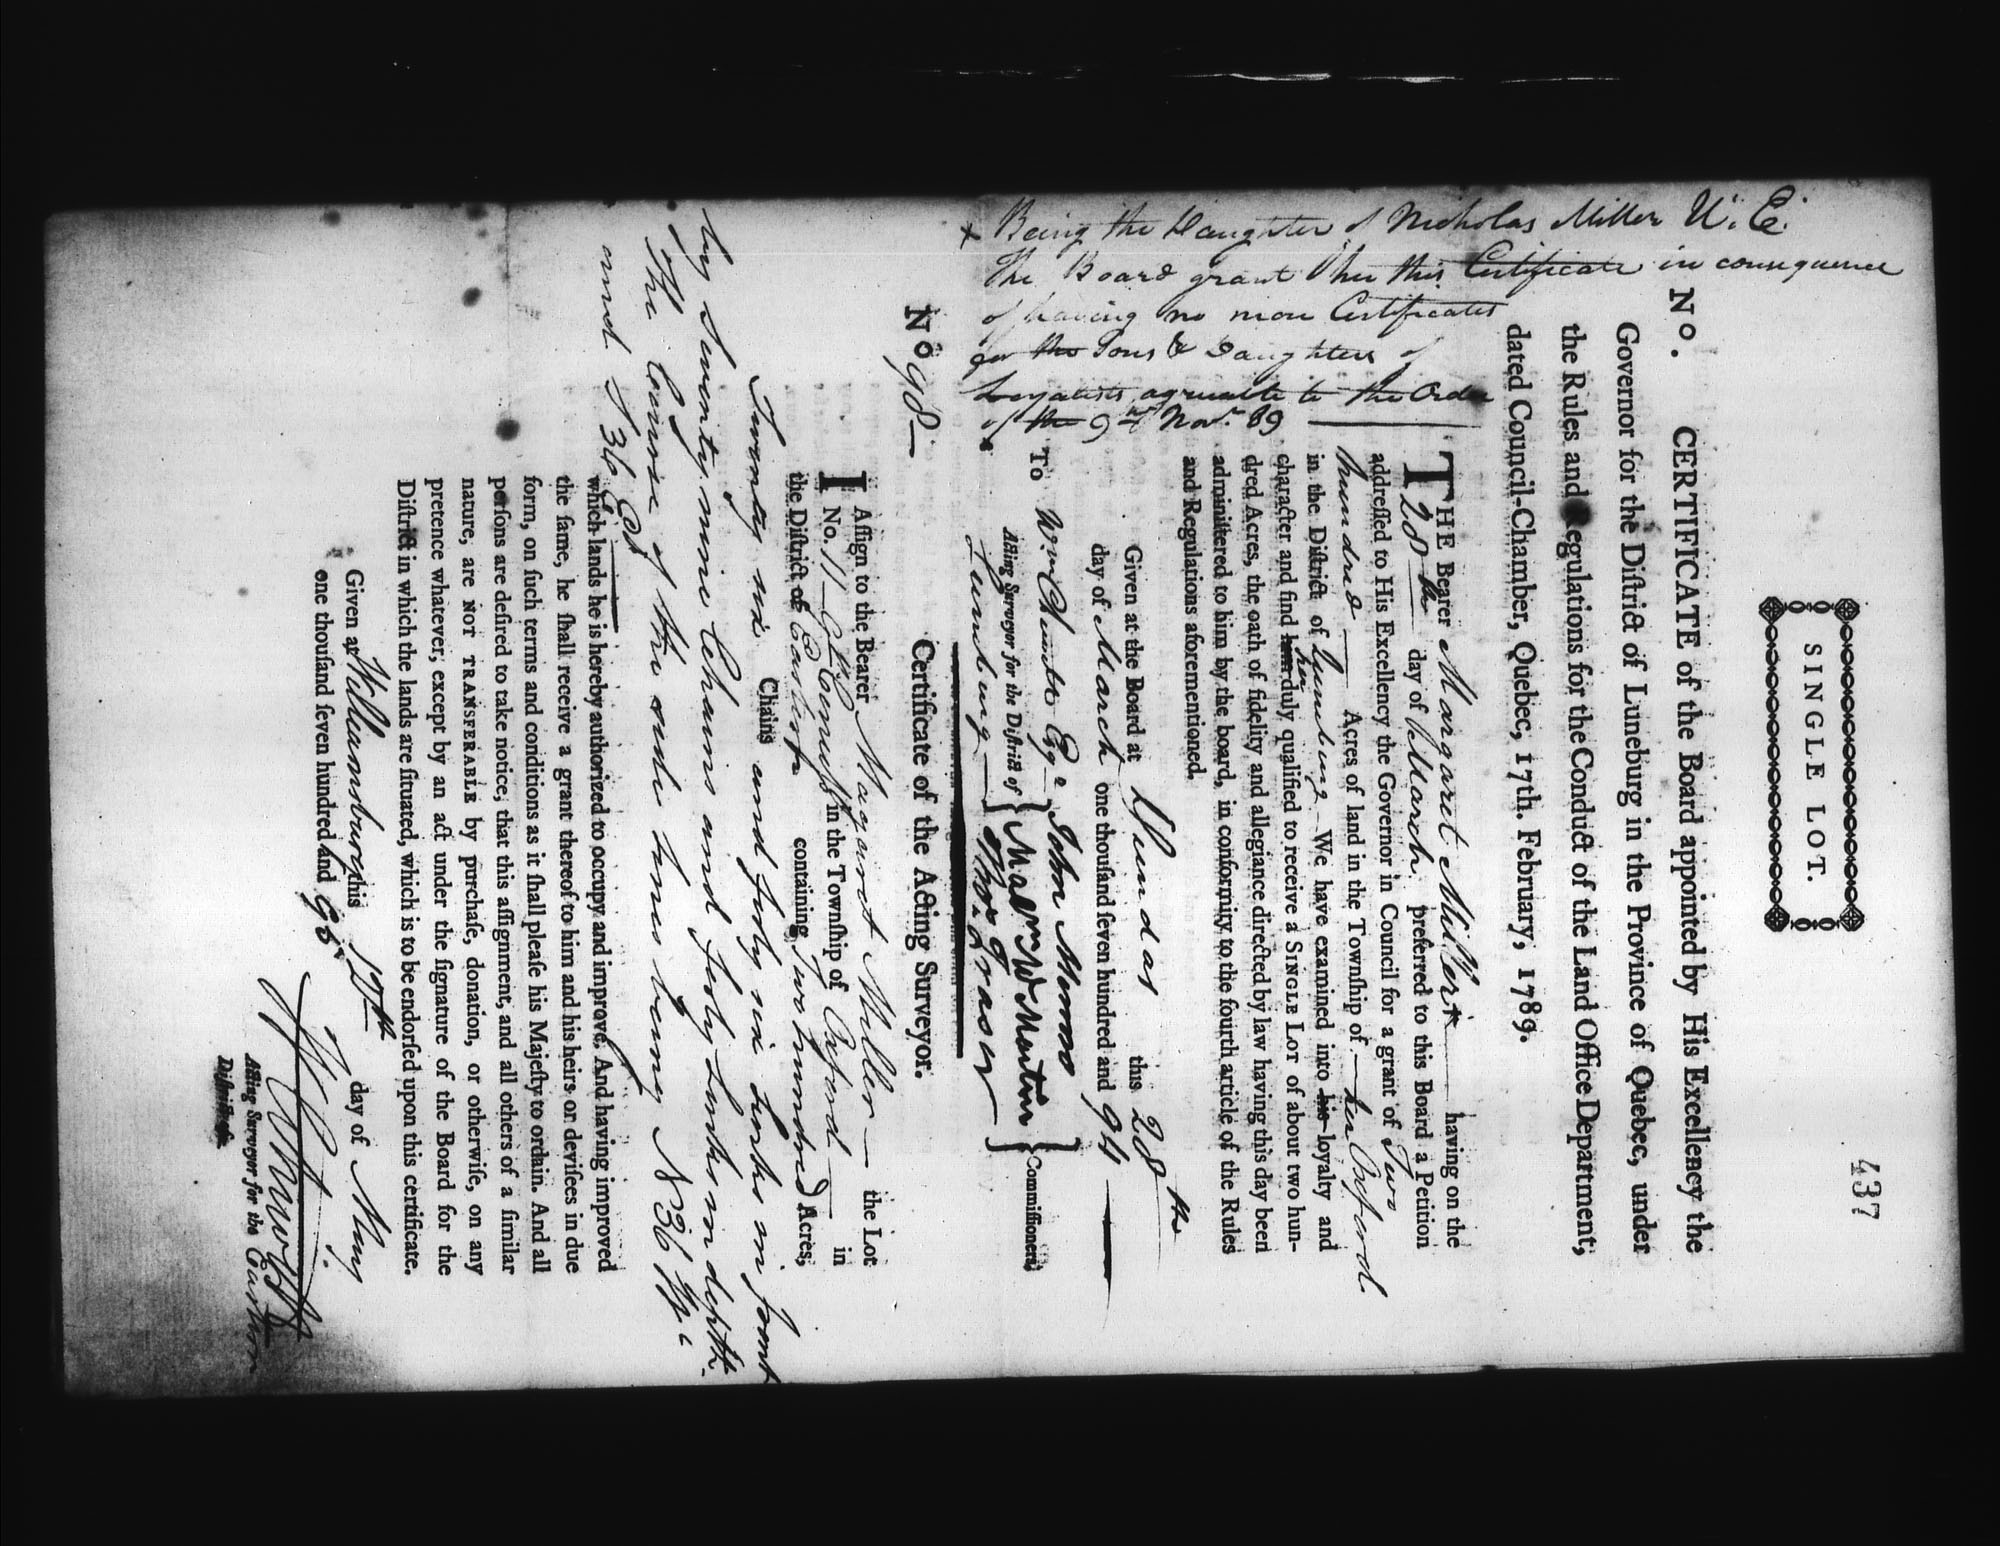 437
SINGLE LOT.
No. CERTIFICATE of the Board appointed by His Excellency the
Governor for the Diſtrict of Luneburg in the Province of Quebec, under
the Rules and egulations for the Conduct of the Land Office Department,
dated Council-Chamber, Quebec, 17th. February, 1789.
THE Bearer Margaret Miller * having on the
28th day of March preferred to this Board a Petition
addreſſed to His Excellency the Governor in Council for a grant of Two
hundred Acres of land in the Townſhip of Oxford
in the Diſtrict of Luneburg We have examined into his her loyalty and
character and find him her duly qualified to receive a SINGLE LOT of about two hun-
dred Acres, the oath of fidelity and allegiance directed by law having this day been
adminiſtered to him by the board, in conformity to the fourth article of the Rules
and Regulations aforementioned.
Given at the Board at Dundas this 28th
day of March one thouſand ſeven hundred and 94
To Wm Chewett Esqr
Acting Surveyor for the Diſtrict of
Luneburg
John Munro
Malm McMartin
Thos. Fraser
Commiſſioners,
x Being the Daughter of Nicholas Miller U. E.
The Board grant her this Certificate in consequence
of having no more Certificates
for the Sons & Daughters of
Loyalists, agreeable to the Order
of the 9th Novr. 89
No 98 Certificate of the Acting Surveyor.
I Aſſign to the Bearer Margaret Miller the Lot
No. 11 in the Townſhip of Oxford in
the Diſtrict of Eastern containing two hundred Acres,
Twenty six Chains and forty six links in front
by Seventy nine Chains and forty links in depth
The Course of the side lines being N 36 W.
and S 36 Et
which lands he is hereby authorized to occupy and improve. And having improved
the ſame, he ſhall receive a grant thereof to him and his heirs or deviſees in due
form, on ſuch terms and conditions as it ſhall pleaſe his Majeſty to ordain. And all
perſons are deſired to take notice, that this aſſignment, and all others of a ſimilar
nature, are NOT TRANSFERABLE by purchaſe, donation, or otherwiſe, on any
pretence whatever, except by an act under the ſignature of the Board for the
Diſtrict in which the lands are ſituated, which is to be endorſed upon this certificate.
Given at Williamsburg this day of May
one thouſand ſeven hundred and 96.
W Chewett
Acting Surveyor for the Eastern
Diſtrict